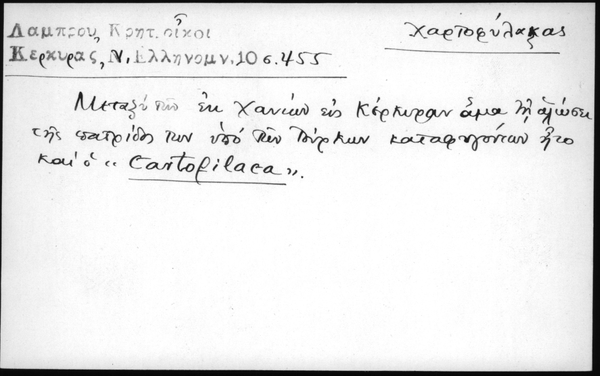 Λαμπρου, Κρητ. οἶκοι
Κερκυρας, Ν. Ελληνομν. 10 σ. 455
Χαρτοφύλακας
Μεταξύ τῶν ἐκ Χανίων εἰς Κέρκυραν ἅμα τῇ ἁλώσει
τῆς πατρίδος των ὑπό τῶν Τούρκων καταφυγόντων ἦτο
καί ὁ “Cartofilaca”.